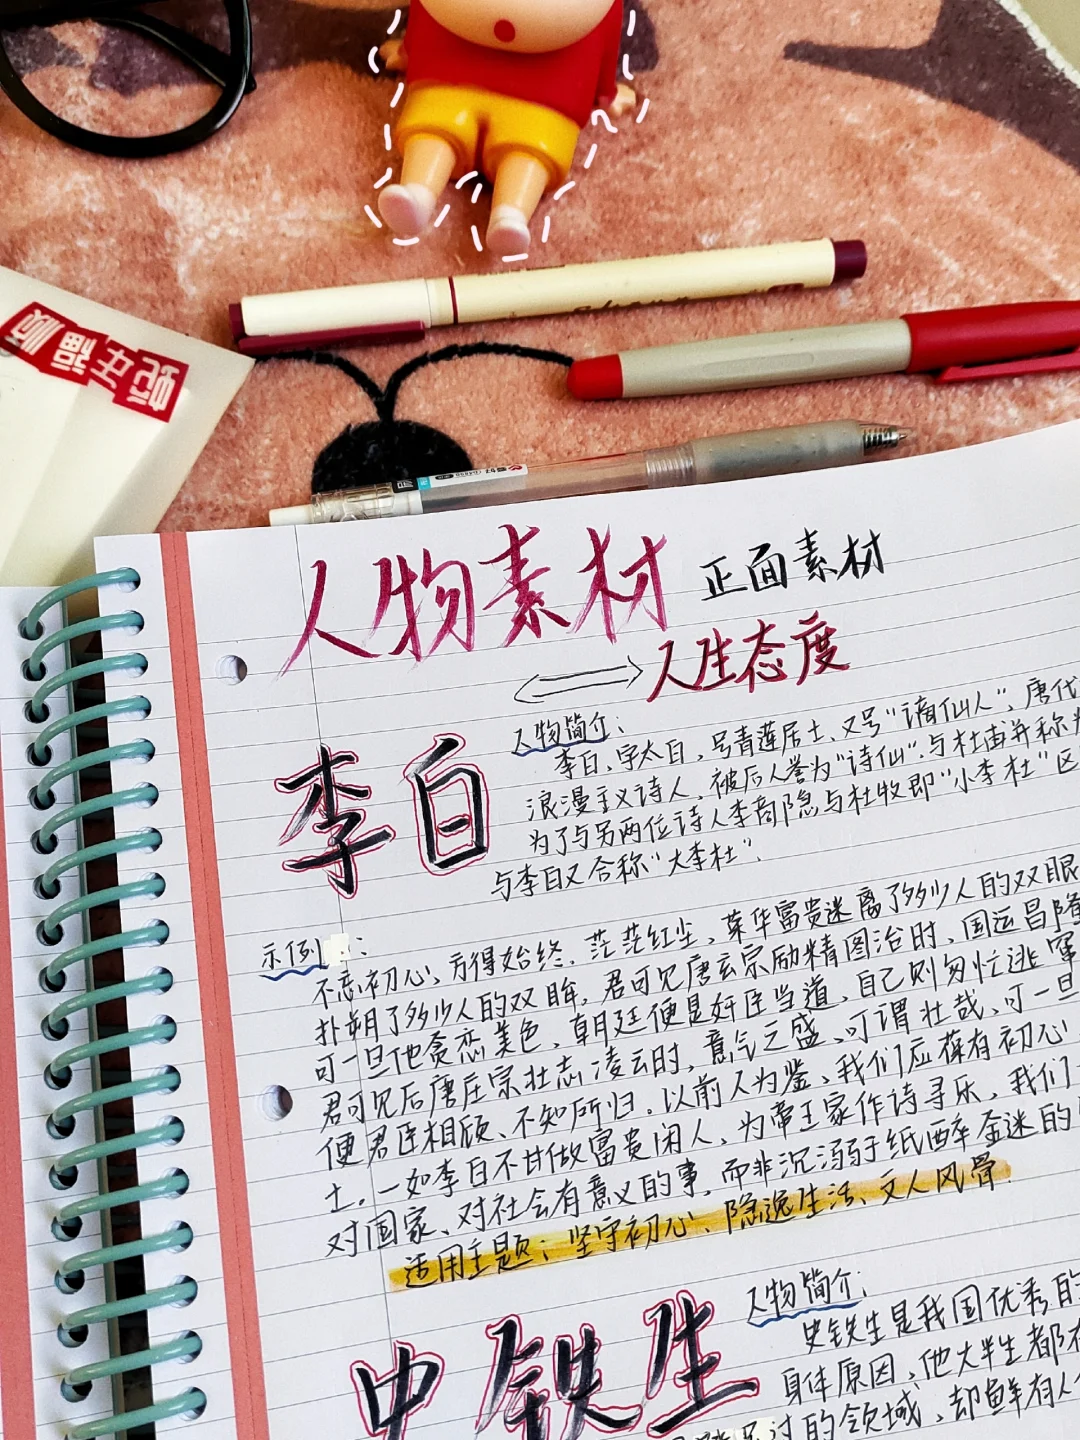 兔年福顺
人物素材 正面素材
人生态度
李白
人物简介:
李白、字太白,号青莲居士、又号“谪仙人”,唐代
浪漫主义诗人,被后人誉为“诗仙”.与杜甫并称为
为了与另两位诗人李商隐与杜牧即“小李杜”区
与李白又合称“大李杜”.
示例:
不忘初心,方得始终,茫茫红尘,荣华富贵迷离了多少人的双眼
扑朔了多少人的双眸,君可见唐玄宗励精图治时,国运昌隆
可一旦他贪恋美色,朝廷便是奸臣当道,自己则匆忙逃窜
君可见后唐庄宗壮志凌云时,意气之盛、可谓壮哉、可一旦
便君臣相顾、不知所归,以前人为鉴、我们应葆有初心
土。一如李白不甘做富贵闲人,为帝王家作诗寻乐,我们
对国家、对社会有意义的事,而非沉溺于纸醉金迷的
适用主题:坚守初心、隐逸生活、文人风骨.
史铁生
人物简介:
史铁生是我国优秀的
身体原因,他大半生都
过的领域、却鲜有人